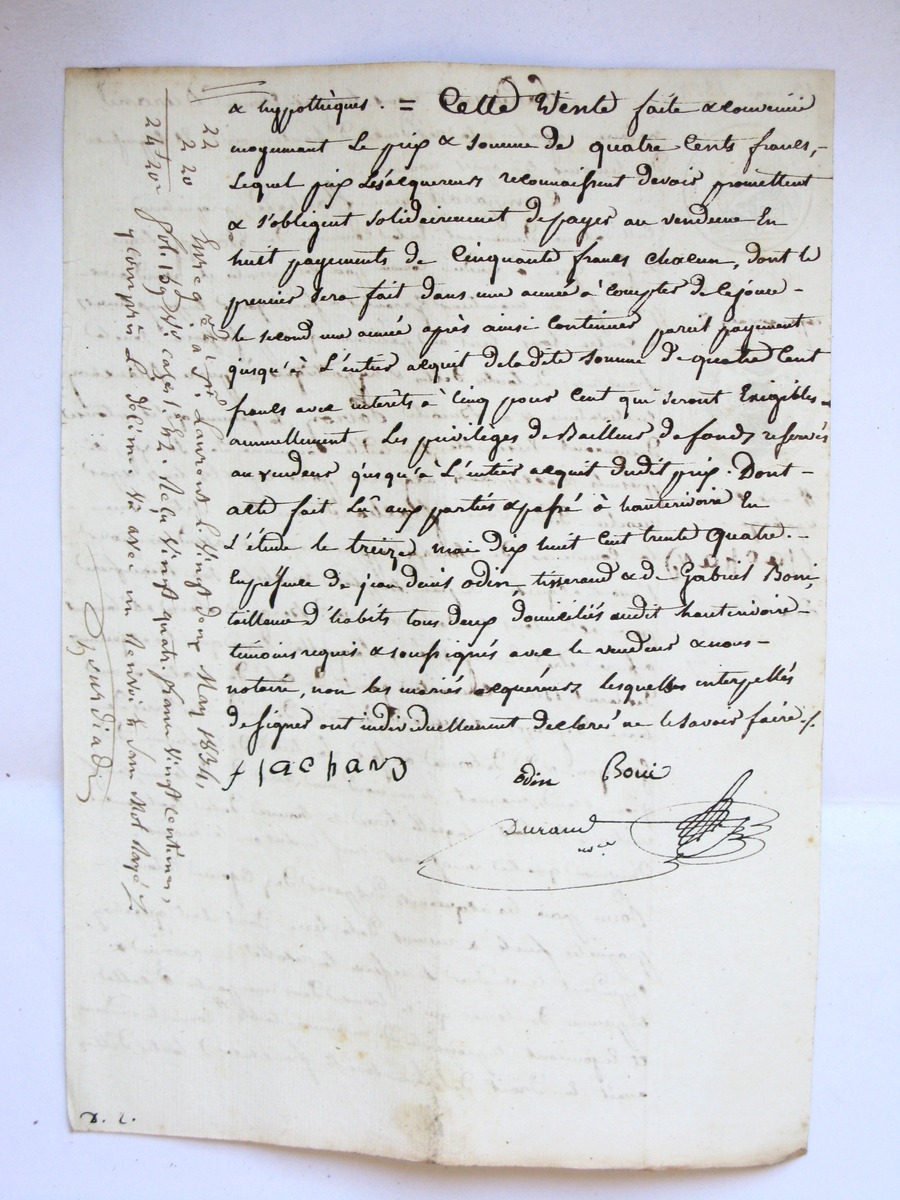 & hypothèques. = Cette Vente faite & convenüe
moyennant Le prix & Somme de quatre Cents francs,-
Lequel prix Les acquereurs reconnaissent devoir promettent
& S'obligent Solidairement de payer au vendeur En
huit payements de Cinquante francs chacun, dont le
premier Sera fait dans une année à compter de ce jour -
le second une année après ainsi Continuer pareil payement
jusqu'à L'entier acquit de la dite Somme de quatre Cent
francs avec intérêts à Cinq pour Cent qui Seront Exigibles
annuellement. Les privilèges de Bailleur de fonds reservés
au vendeur jusqu'à L'entier acquit dudit prix. Dont -
acte fait Lû aux parties & passé à hauterivoire En
L'étude le treize mai dix huit Cent trente quatre. -
En présence de jean denis odin, tisserand & de Gabriel Boni,
tailleur d'habits tous deux domiciliés audit hauterivoire -
témoins requis & soussignés avec le vendeur & nous -
notaire, non les mariés acquéreurs lesquels interpellés
de signer ont individuellement declaré ne le Savoir faire./.
flachard
odin Boni
Durand
nre
22
2 20
24f 20c
Enregré à St Laurent L. Vingt deux May 1834,
fol. 169 Vo cases 1. & 2. Reçu Vingt quatre francs Vingt centimes,
y Compris Le décime. Vu avec un Renvoi & Son Mot Rayé ./.
D. 2.